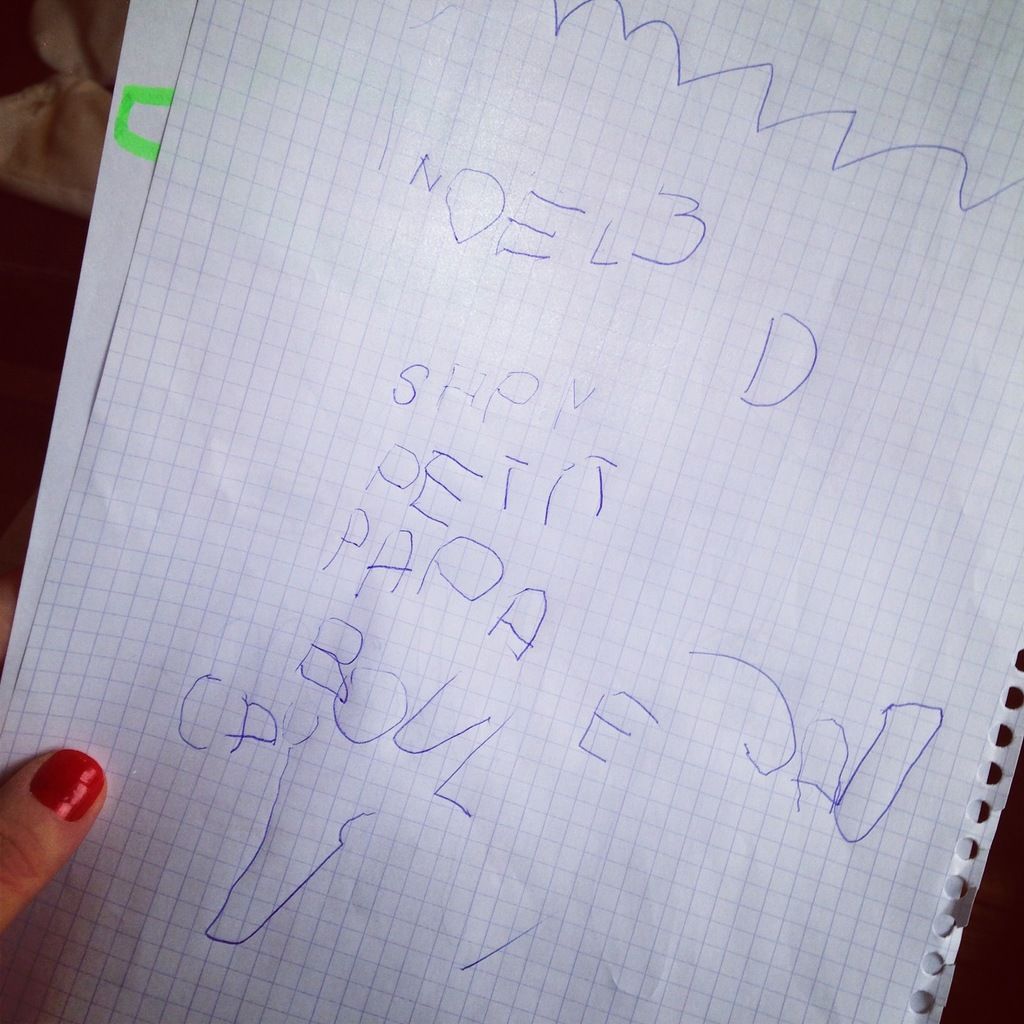 NOEL3
D
SHPN
PETIT
PAPA
BOUL E
CA